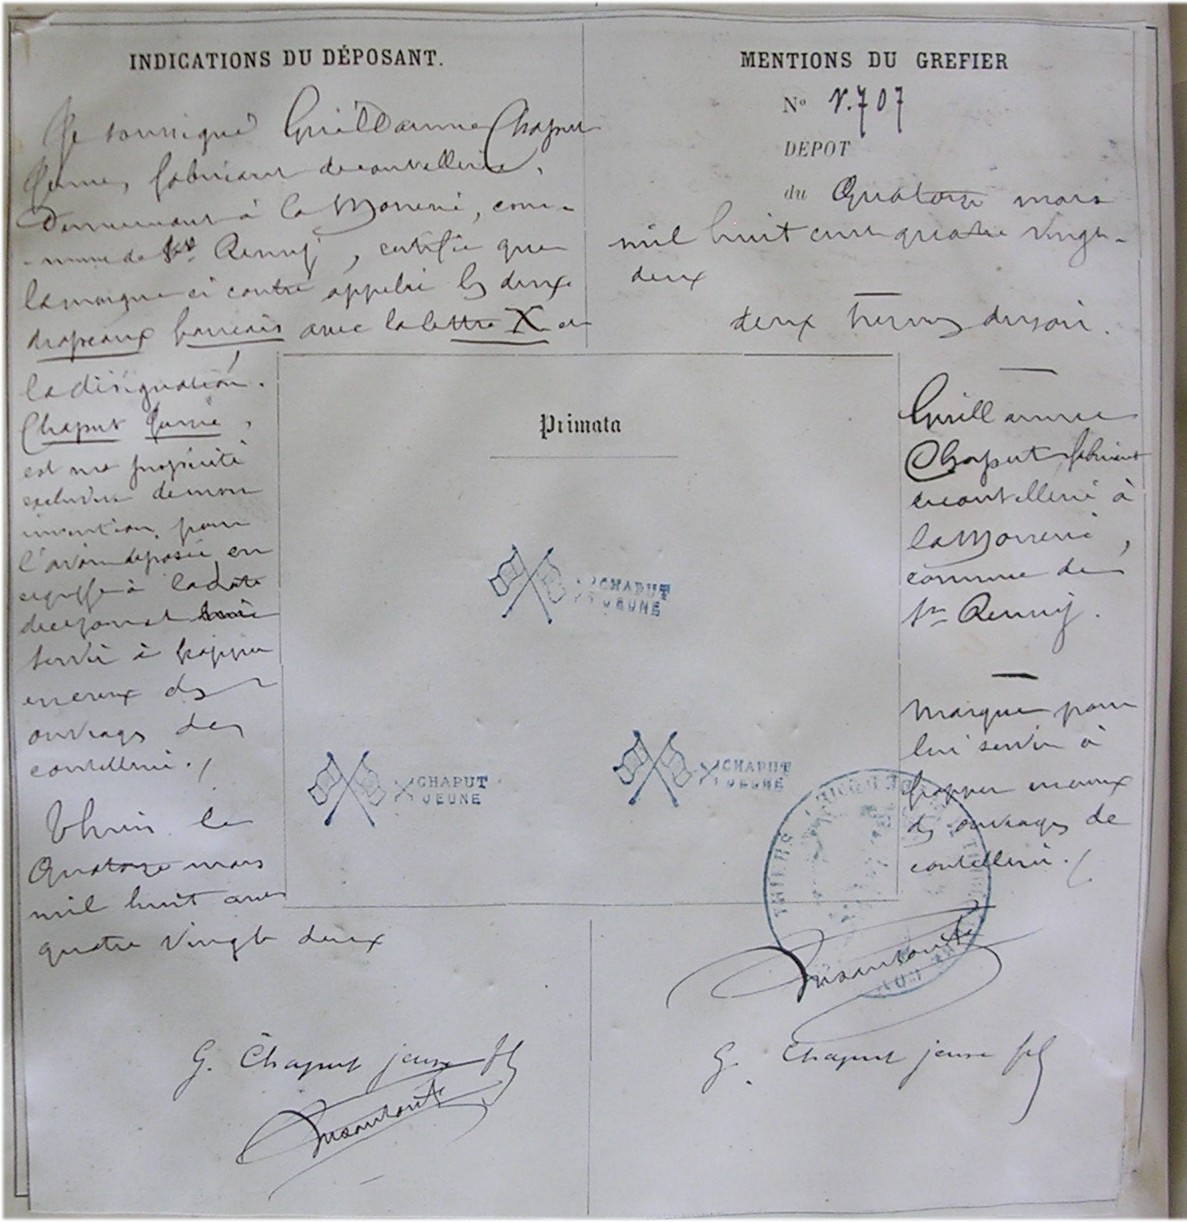 INDICATIONS DU DÉPOSANT.
Je soussigné Guillaume Chaput
Jeune, fabricant de coutellerie,
Demeurant à la Monnerie, com-
-mune de St Remy, certifie que
la marque ci contre appelée les deux
drapeaux français avec la lettre X et
la désignation.
Chaput Jeune,
est ma propriété
exclusive de mon
invention, pour
l'avoir déposée en
à la date
de ce jour et
servir à frapper
en creux des
ouvrages de
coutellerie./
Thiers le
Quatorze mars
mil huit cent
quatre vingt deux
G. Chaput jeune fils
MENTIONS DU GREFIER
No V.707
DÉPOT
du Quatorze mars
mil huit cent quatre vingt-
deux
deux heures du soir.
Guillaume
Chaput fabricant
de coutellerie à
la Monnerie,
commune de
St Remy.
Marque pour
lui servir à
frapper en creux
des ouvrages de
coutellerie./
G. Chaput jeune fils
Primata
X CHAPUT
JEUNE
X CHAPUT
JEUNE
X CHAPUT
JEUNE
THIERS